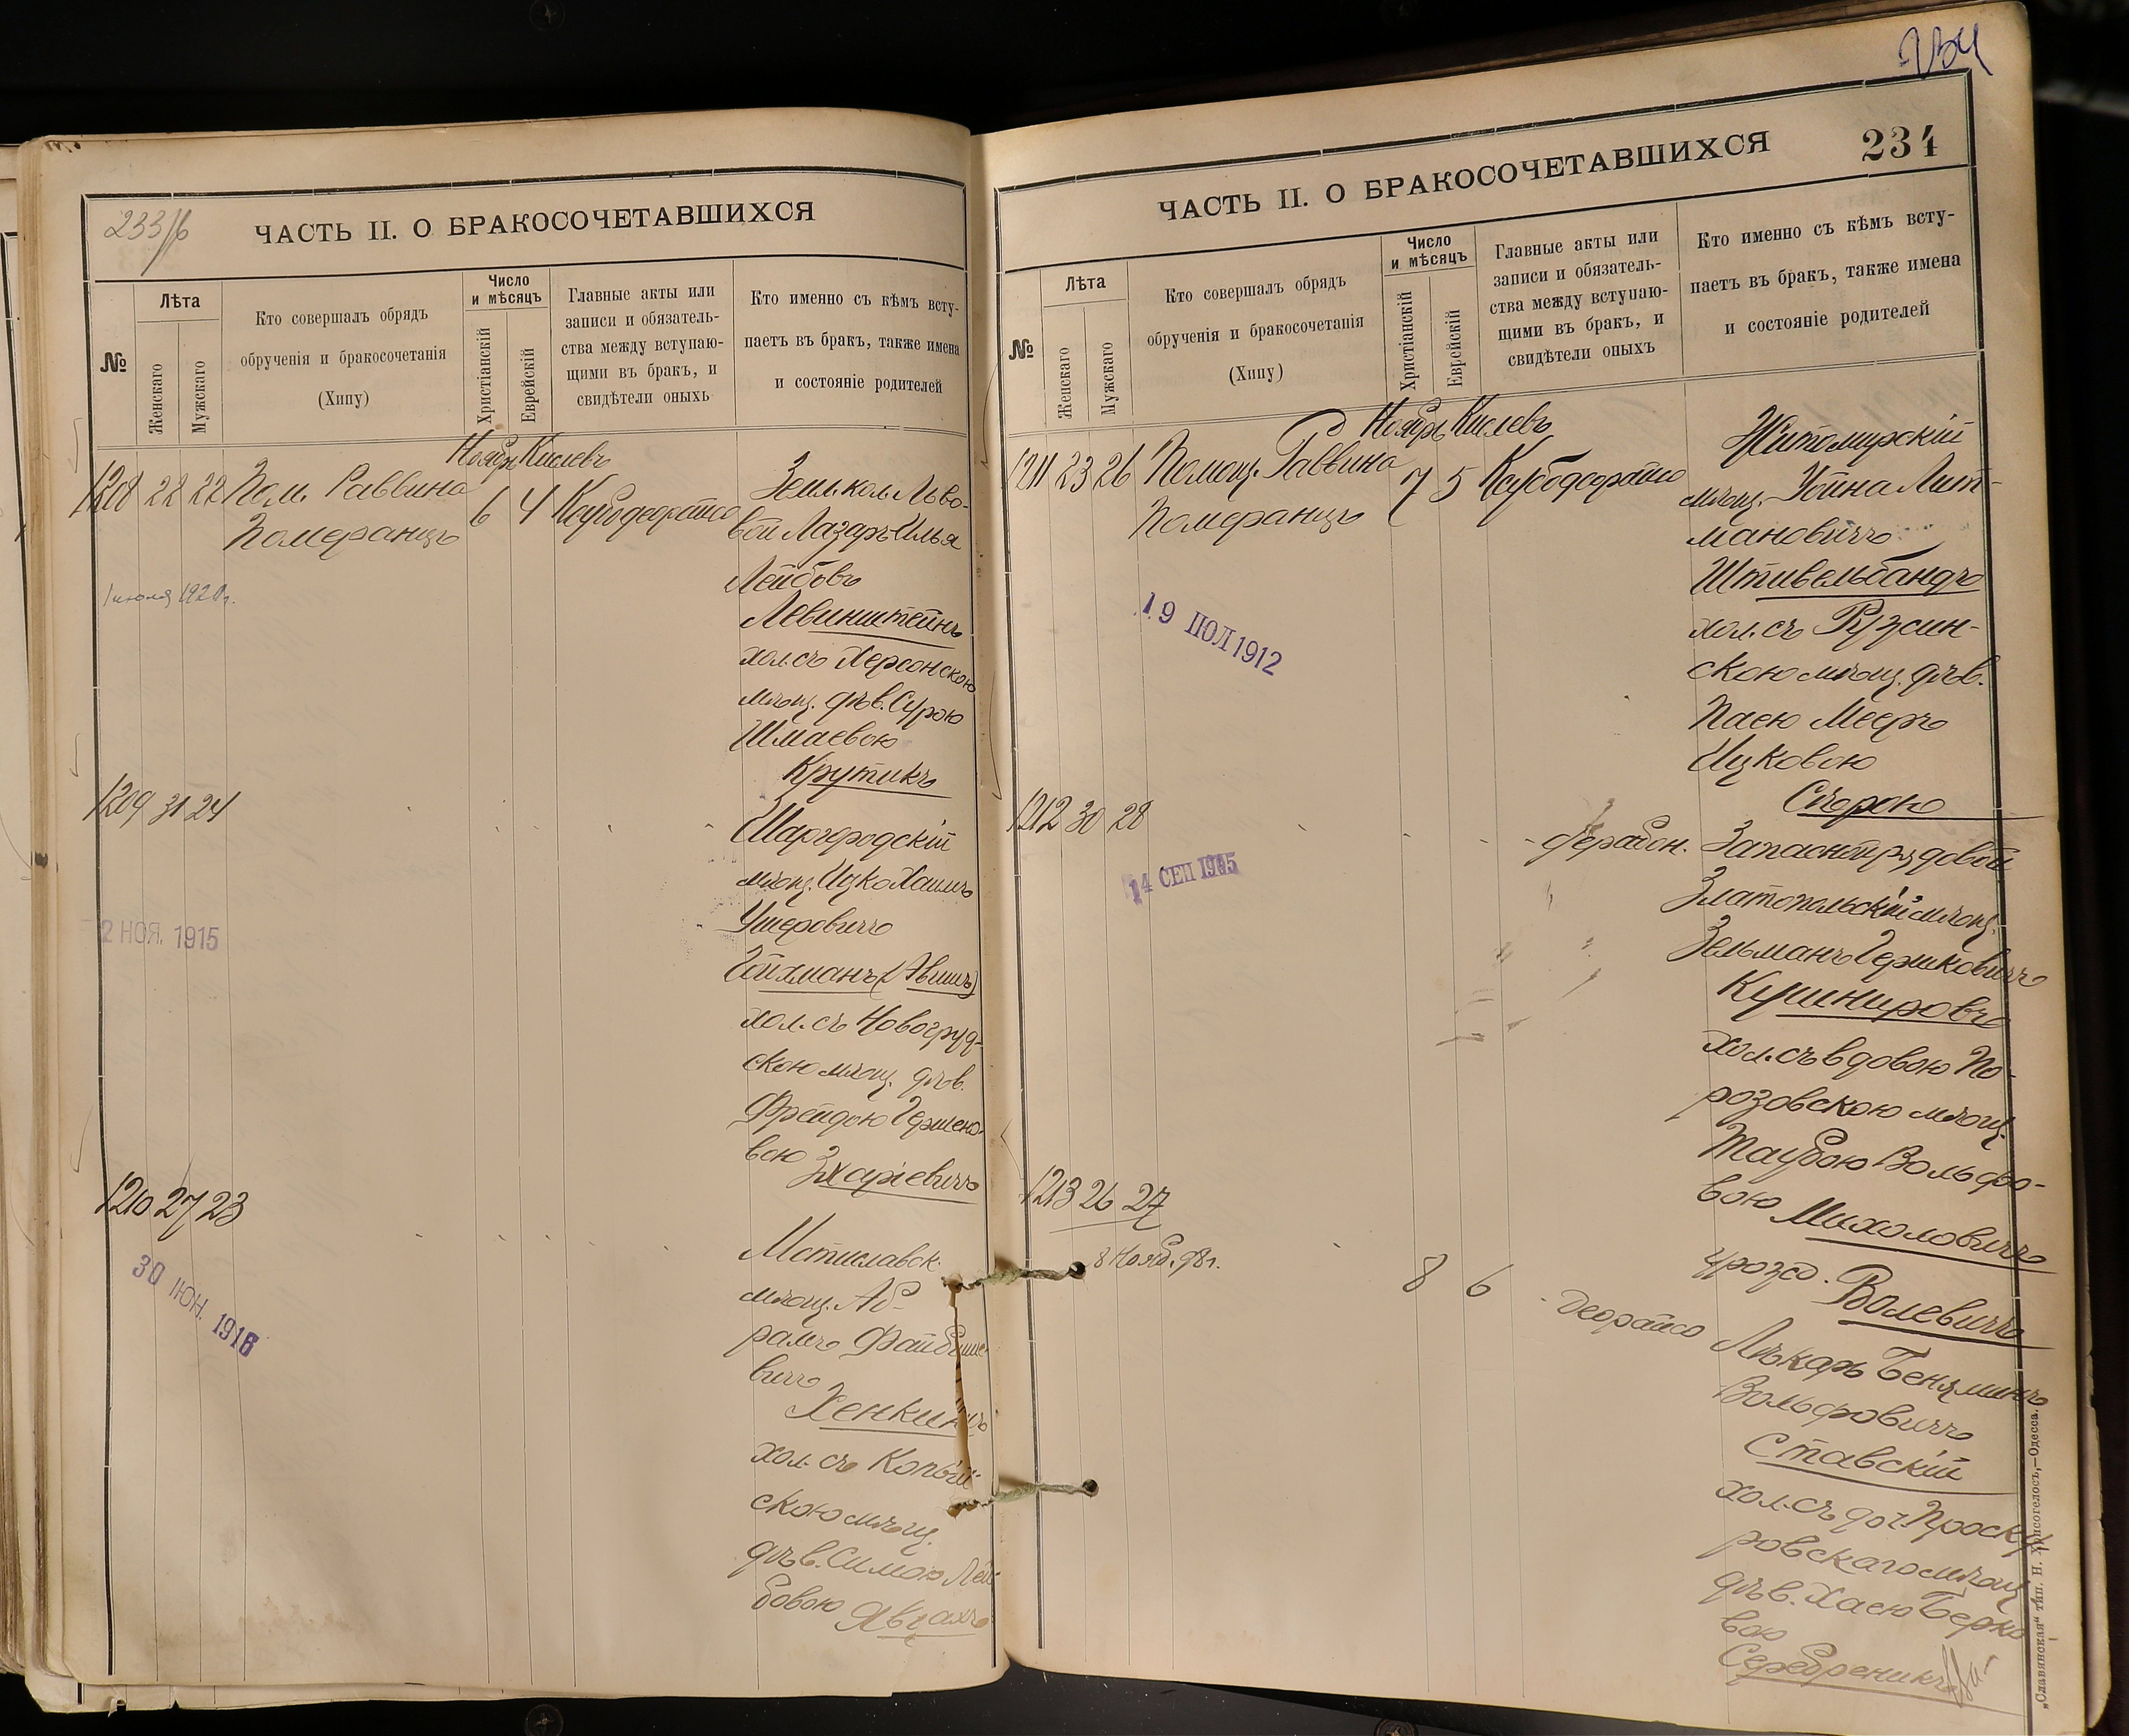 233/б
ЧАСТЬ II. О БРАКОСОЧЕТАВШИХСЯ
№
Лѣта
Женскаго
Мужскаго
Кто совершалъ обрядъ
обрученія и бракосочетанія
(Хипу)
Число
и мѣсяцъ
Христіанскій
Еврейскій
Главные акты или
записи и обязатель-
ства между вступаю-
щими въ бракъ, и
свидѣтели оныхъ
Кто именно съ кѣмъ всту-
паетъ въ бракъ, также имена
и состояніе родителей
Ноябрь Кислевъ
1208 22 22 Пом. Раввина 6 4
Померанцъ
Земл. кол. Льво-
вой Лазарь-Илья
Лейбовъ
Левинштейнъ
хол. съ Херсонскою
мѣщ. дѣв. Сурою
Шмаевою
Крутикъ
1 июля 1920 г.
1209 31 24
Шаргородскій
мѣщ. Ицко Хаимъ
Ушеровичъ
Гойхманъ (Авишъ)
хол. съ Новогруд-
скою мѣщ. дѣв.
Фрейдою Гершено-
вою
2 НОЯ. 1915
1210 27 23
Мстиславск.
мѣщ. Аб-
рамъ Файбише-
вичъ
Хенкинъ
хол. съ Копыс-
скою мѣщ.
дѣв. Симою Лей-
бовою
30 ІЮН. 1916
234
234
ЧАСТЬ II. О БРАКОСОЧЕТАВШИХСЯ
№
Лѣта
Женскаго
Мужскаго
Кто совершалъ обрядъ
обрученія и бракосочетанія
(Хипу)
Число
и мѣсяцъ
Христіанскій
Еврейскій
Главные акты или
записи и обязатель-
ства между вступаю-
щими въ бракъ, и
свидѣтели оныхъ
Кто именно съ кѣмъ всту-
паетъ въ бракъ, также имена
и состояніе родителей
Ноябрь Кислевъ
1211 23 26 Помощ. Раввина 7 5
Померанцъ
Житомирскій
мѣщ. Іойна Лит-
мановичъ
Штивельбандъ
хол. съ Ружин-
скою мѣщ. дѣв.
Паею Мееръ
Ицковою
19 ІЮЛ 1912
1212 30 28
Запасной рядовой
Златопольскій мѣщ.
Зельманъ Гершковичъ
Кушнировъ
хол. съ вдовою По-
розовскою мѣщ.
Таубою Вольфо-
вою Михоловичъ
урожд. Волевичъ
14 СЕП 1915
1213 26 27 8 6
8 Нояб. 98 г.
Лѣкарь Беняминъ
Вольфовичъ
Ставскій
хол. съ доч. Проску-
ровскаго мѣщ.
дѣв. Хаею Берко-
вою
Серебреникъ
„Славянская“ тип. Н. Хрисогелосъ,—Одесса.